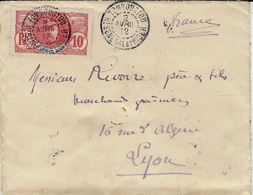 France
TOMBOUCTOU
AVRIL
12
10
Messieurs Rivoire père & fils
marchands grainiers
16 rue d'Algérie
Lyon